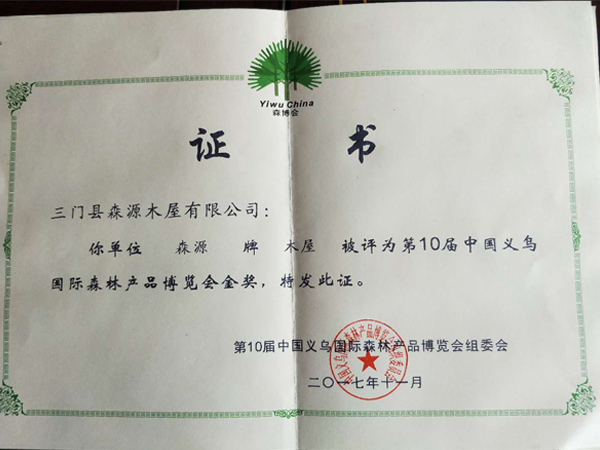 Yiwu China
森博会
证书
三门县森源木屋有限公司：
你单位 森源 牌 木屋 被评为第10届中国义乌
国际森林产品博览会金奖，特发此证。
第10届中国义乌国际森林产品博览会组委会
二〇一七年十一月